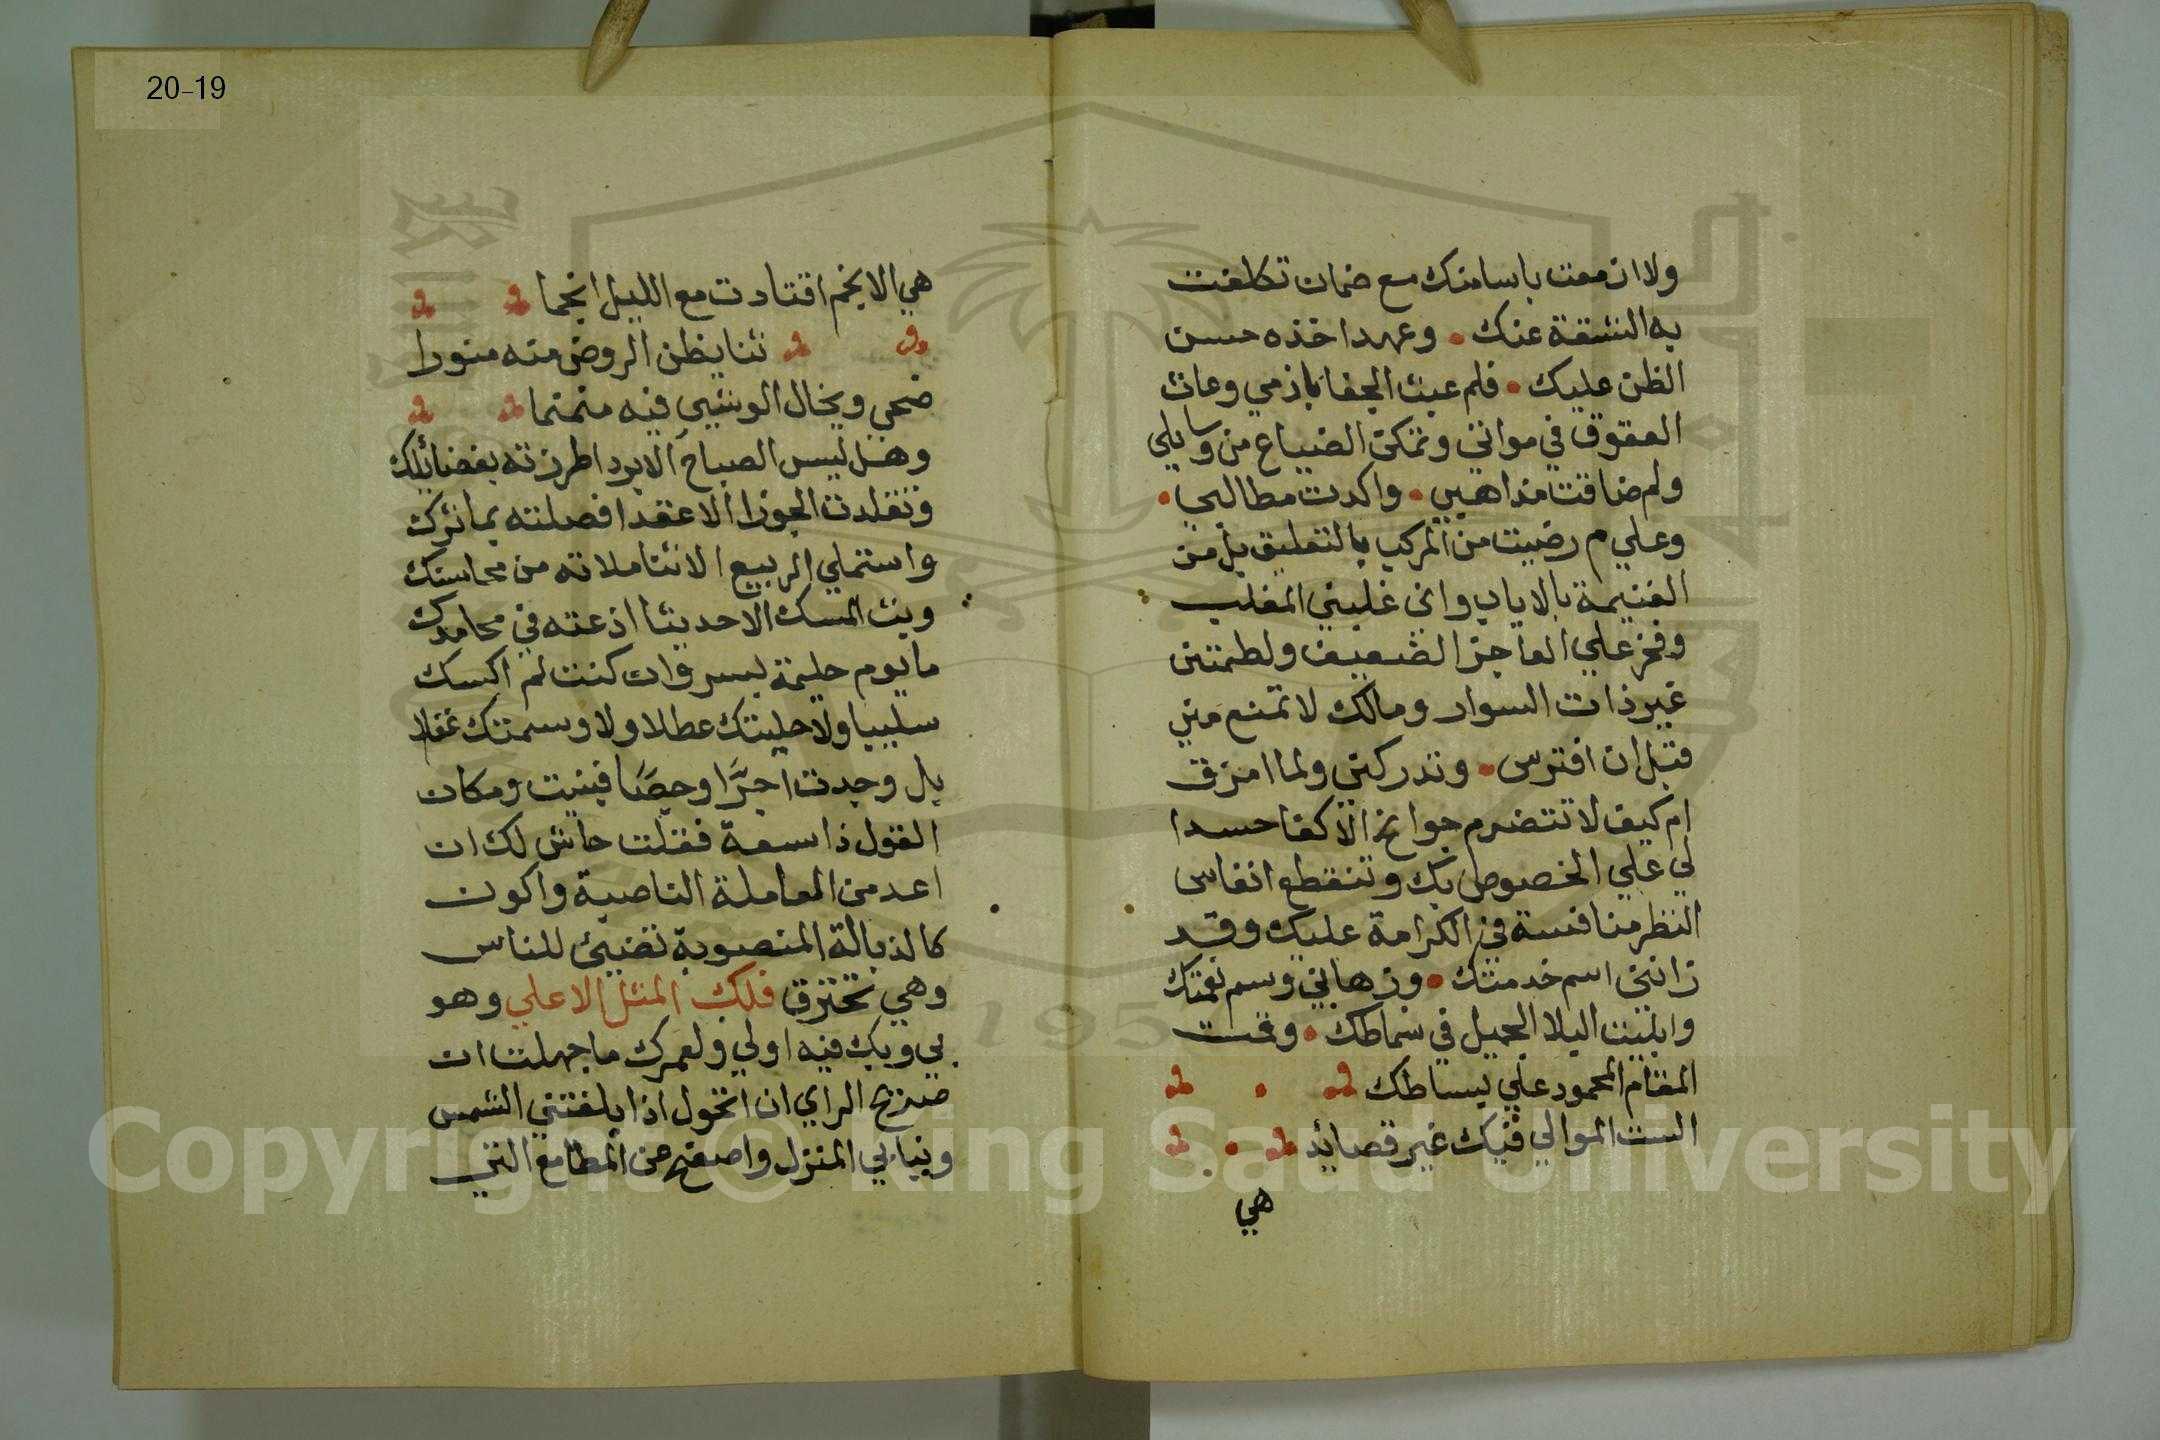 ولا ان معت باسامتك مع ضمان تكلفت
به الشقة عنك • وعهد اخذه حسن
الظن عليك • فلم عبث الجفا باذمي وعاث
العقوق في مواتي وتمكن الضياع من وسايلي
ولم ضاقت مذاهبي • واكدت مطالبي •
وعلي م رضيت من المركب بالتعليق بل من
الغنيمة بالاياب واني غلبني المغلب
وفخر علي العاجز الضعيف ولطمتني
غير ذات السوار ومالك لا تمنع مني
قبل ان افترس • وتدركني ولما امزق
ام كيف لا تتضرم جوانح الاكفا حسدا
لي علي الخصوص بك وتنقطع انفاس
النظر منافسة في الكرامة عليك وقد
زانني اسم خدمتك • وزهاني وسم نعمتك
وابليت البلا الجميل في سماطك • وقمت
المقام المحمود علي بساطك
الست الموالي فيك غير قصائد
هي
20-19
هي الانجم اقتادت مع الليل انجما
ثنا يظن الروض منه منورا
ضحي ويخال الوشي فيه منمنما
وهل لبس الصباح الا بردا طرزته بفضائلك
وتقلدت الجوزا الا عقدا فصلته بمآثرك
واستملي الربيع الا ثنا ملاته من محاسنك
وبث المسك الا حديثا اذعته في محامدك
ما يوم حليمة بسر وان كنت لم اكسك
سليبا ولا حليتك عطلا ولا وسمتك غفلا
بل وجدت اجرّا وجصّا فبنيت ومكان
القول ذا سعة فقلت حاش لك ان
اعد من العاملة الناصبة واكون
كالذبالة المنصوبة تضيئ للناس
وهي تحترق فلك المثل الاعلي وهو
بي وبك فيه اولي ولعمرك ما جهلت ان
صريح الراي ان اتحول اذا بلغتني الشمس
ونبا بي المنزل واصفح عن المطامع التي
1957
Copyright © King Saud University